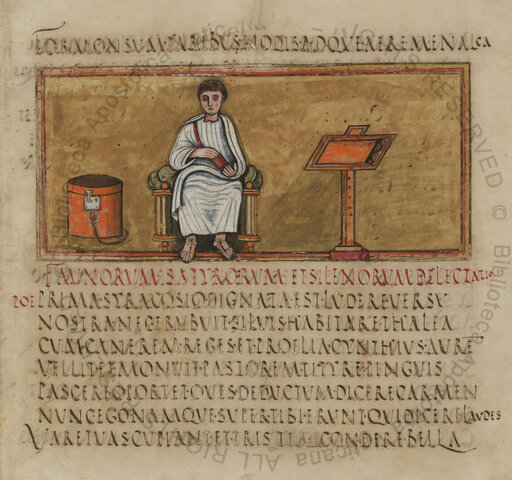 FORMONSVM PARIBVS NODIS ADQVE AERE MENALCA
FAVNORVM SATYRORVM ET SILENORVM DELECTATIO
POE PRIMA SYRACOSIO DIGNATA EST LVDERE VERSV
NOSTRA NEC ERVBVIT SILVIS HABITARE THALEA
CVM CANEREM REGES ET PROELIA CYNTHIVS AVRE
VELLIT EMONVIT PASTOREM TITYRE PINGVIS
PASCERE OPORTET OVES DEDVCTVM DICERE CARMEN
NVNC EGO NAMQVE SVPER TIBI ERVNT QVI DICERE LAVDES
VARE TVAS CVPIANT ET TRISTIA CONDERE BELLA
Biblioteca Apostolica Vaticana
ALL RIGHTS RESERVED © Biblioteca Apostolica Vaticana ALL RIGHTS